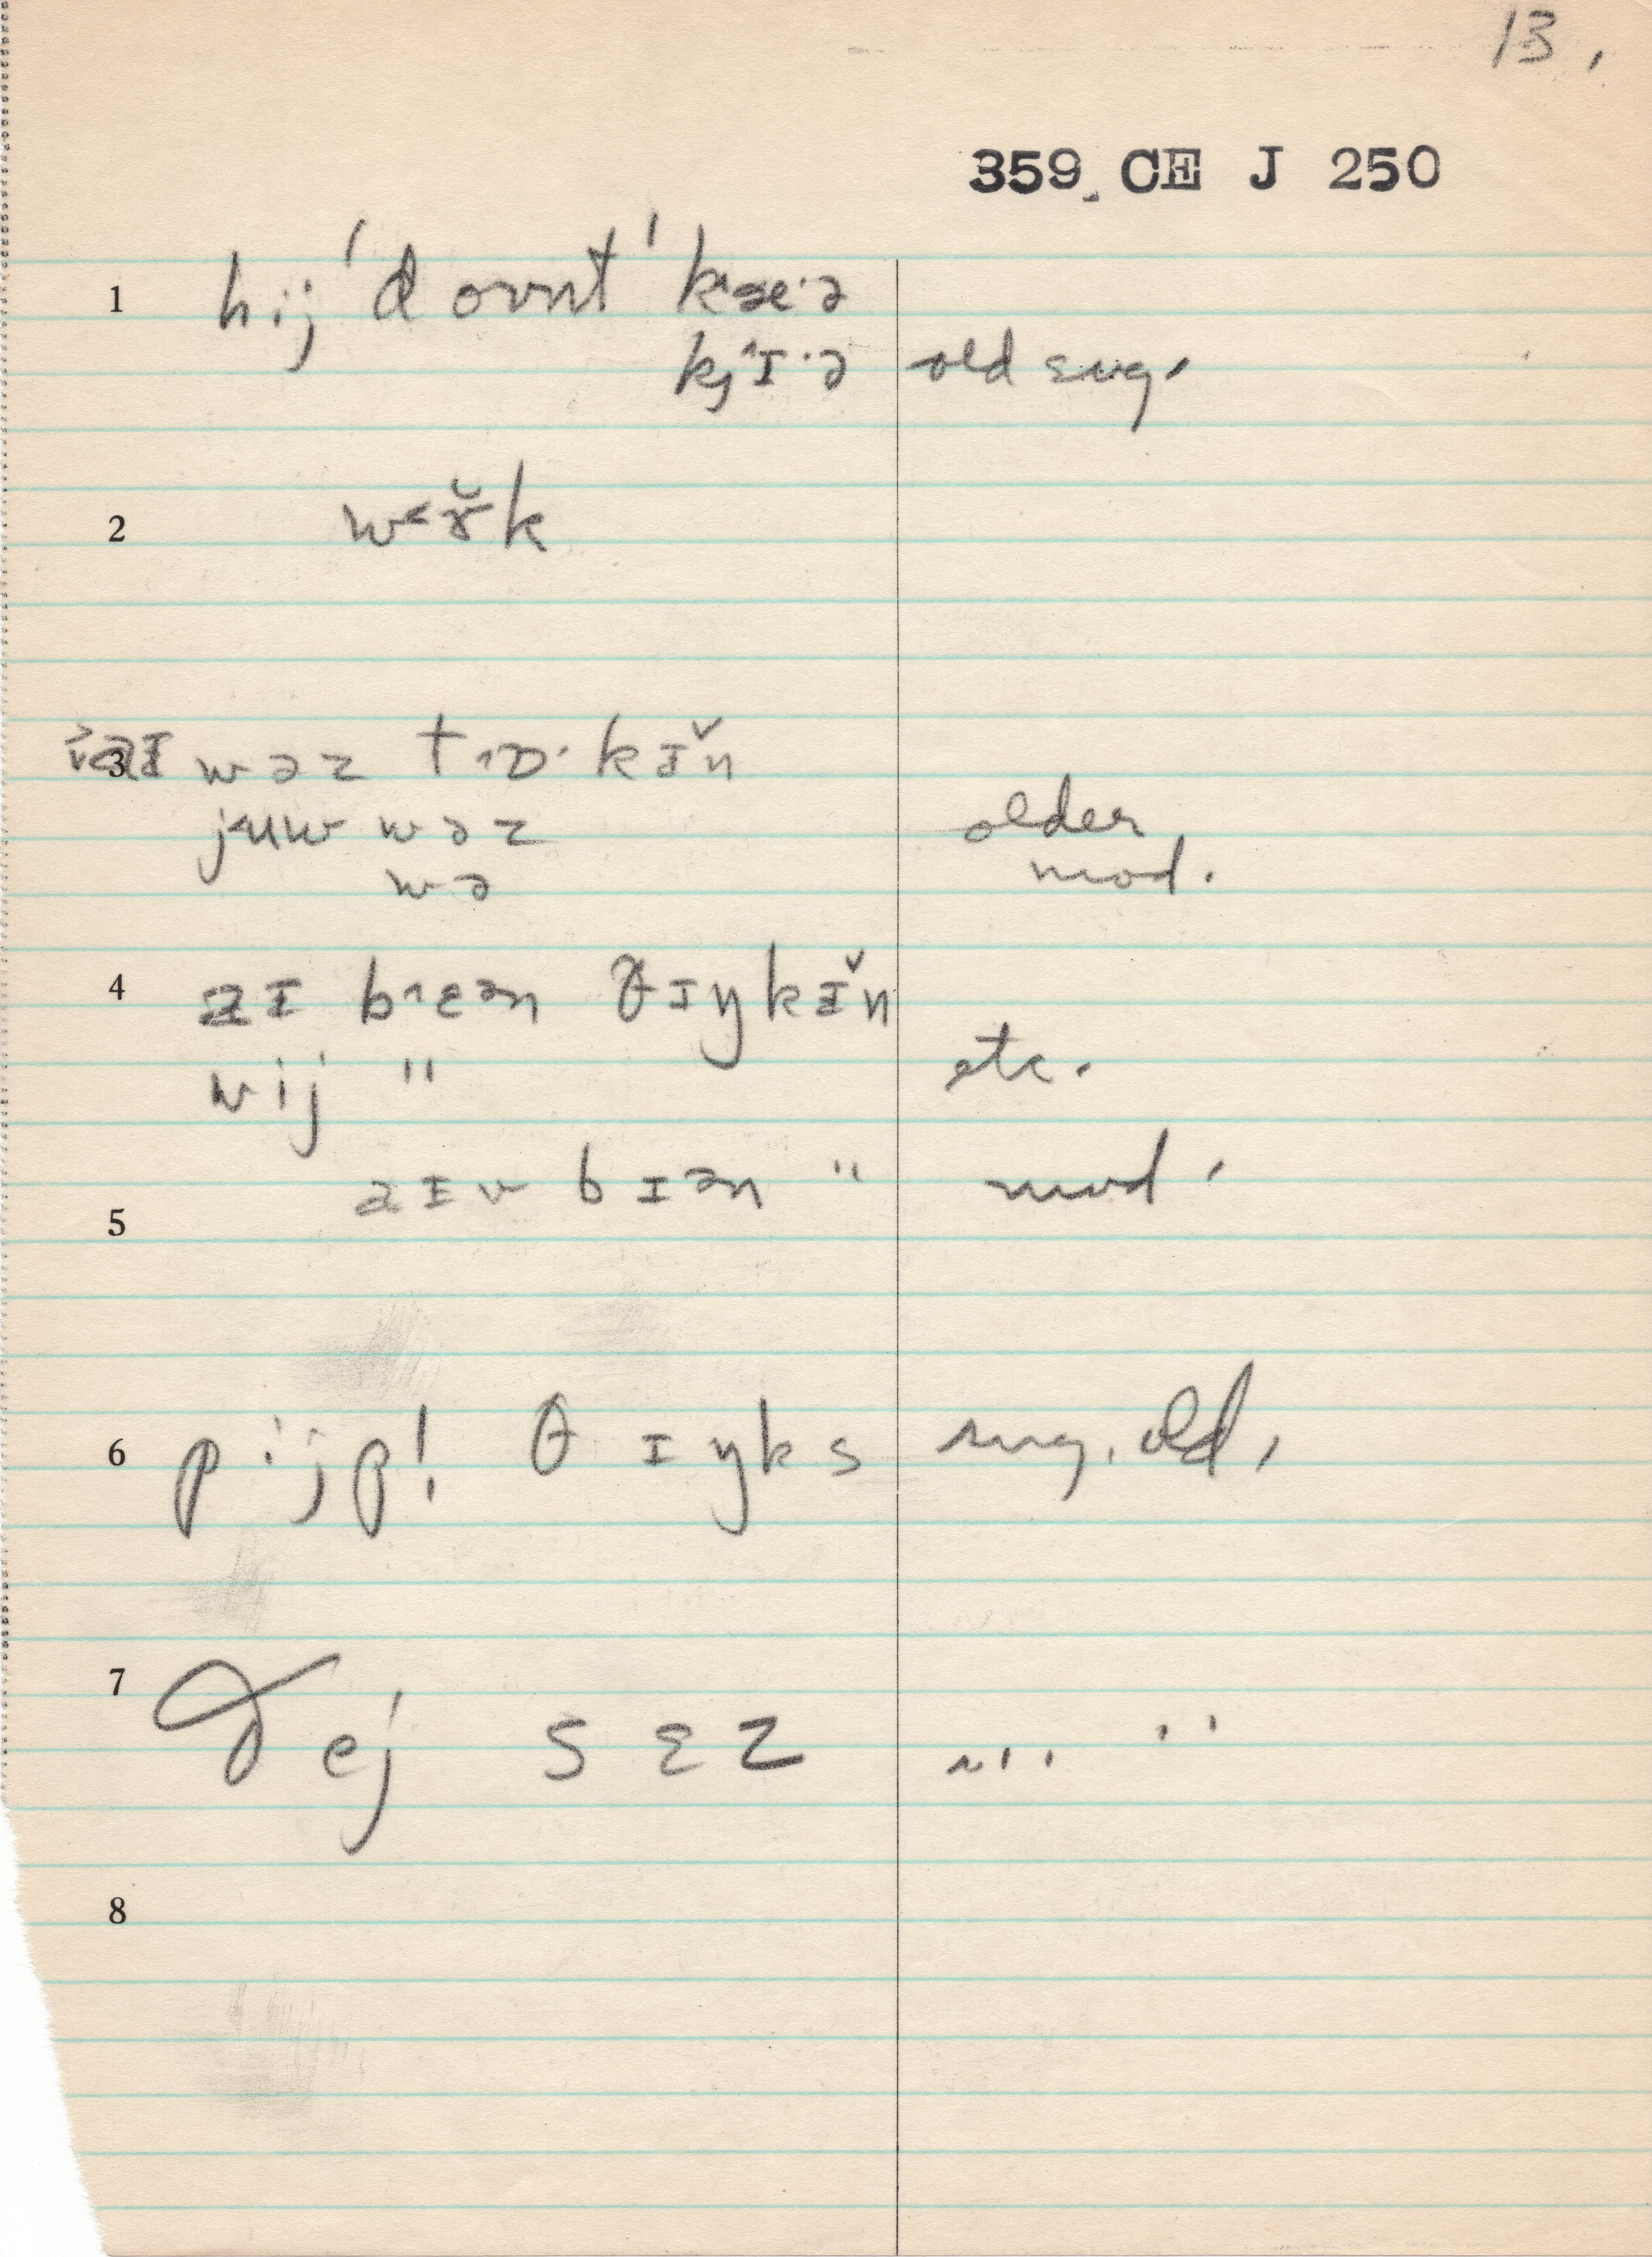 13.
359 CE J 250
1 hij ˈd ount ˈkæ·ə
kj^ɪ·ə old sug.
2 w<ɚ̆k
3 wəz t^ɒ·kɪ̌n
j<uw wəz older
wə mod.
4 aɪ b^ɛən θɪŋkɪ̌n
wij " etc.
aɪv bɪən " mod.
5
6 pijp! θɪŋks sug. old,
7 ðej sɛz " "
8